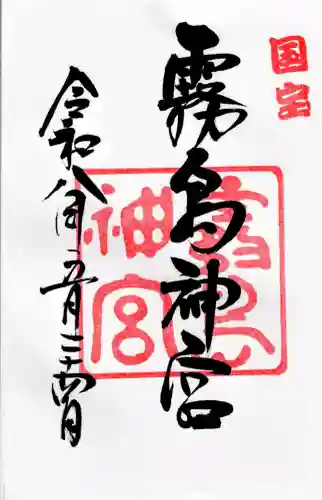 国宝
霧島神宮
霧島神宮
令和八年五月二十四日